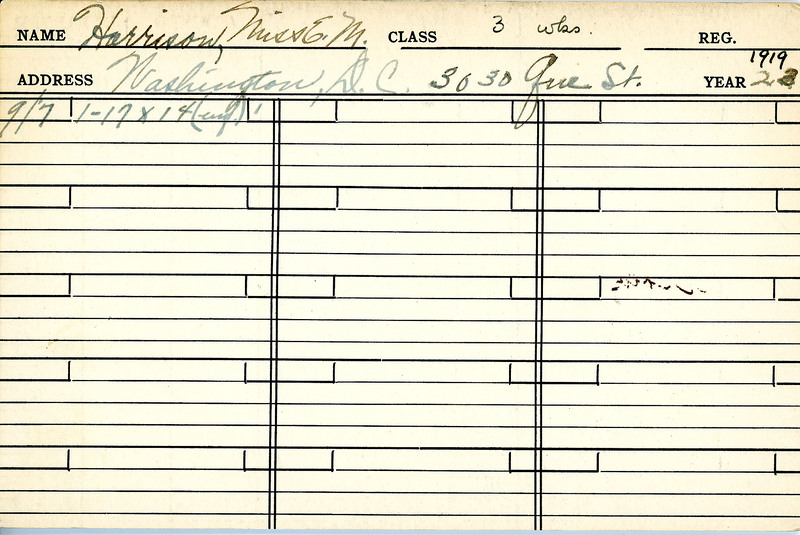 NAME Harrison, Miss E. M. CLASS 3 wks. REG.
1919
ADDRESS Washington, D. C. 3030 Que St. YEAR 23
9/7 1-17 x 14 (unf) 1